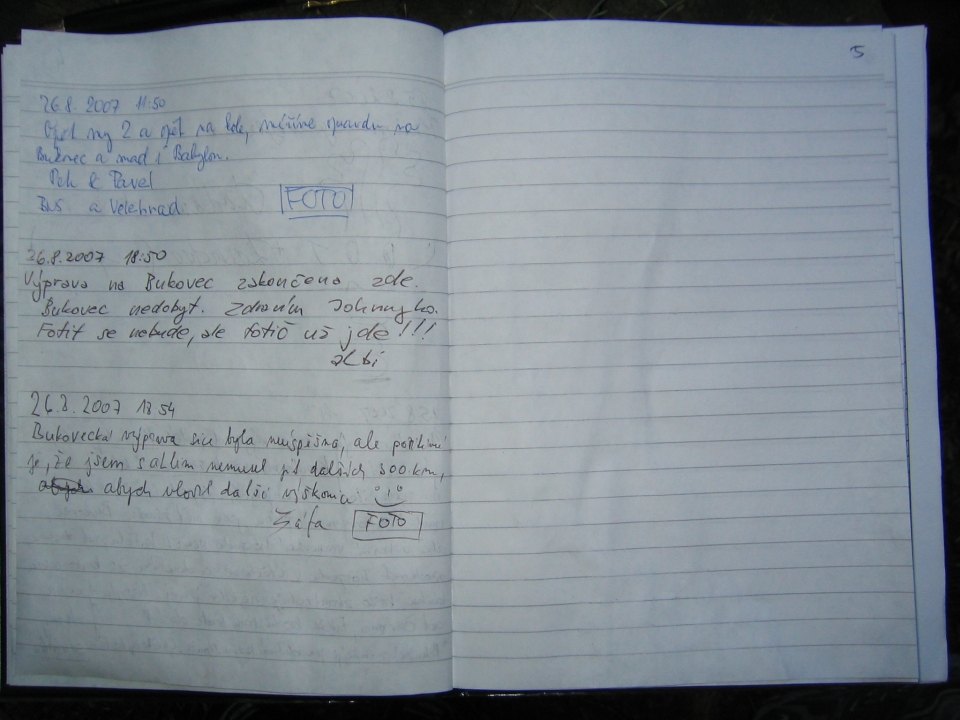 26.8. 2007 11:50
Opět my 2 a opět na kole, míříme opravdu na
Bukovec a snad i Babylon.
Petr & Pavel
Bus. a Velehrad
FOTO
26.8.2007 18:50
Výprava na Bukovec zakončena zde.
Bukovec nedobyt. Zdravím Johnnyho.
Fotit se nebude, ale fotič už jde!!!
albi
26.8. 2007 18 54
Bukovecká výprava sice byla neúspěšná, ale potěšení
je, že jsem s albim nemusel jít dalších 300 km,
abych ulovil další výškoměr
Žáfa
FOTO
5